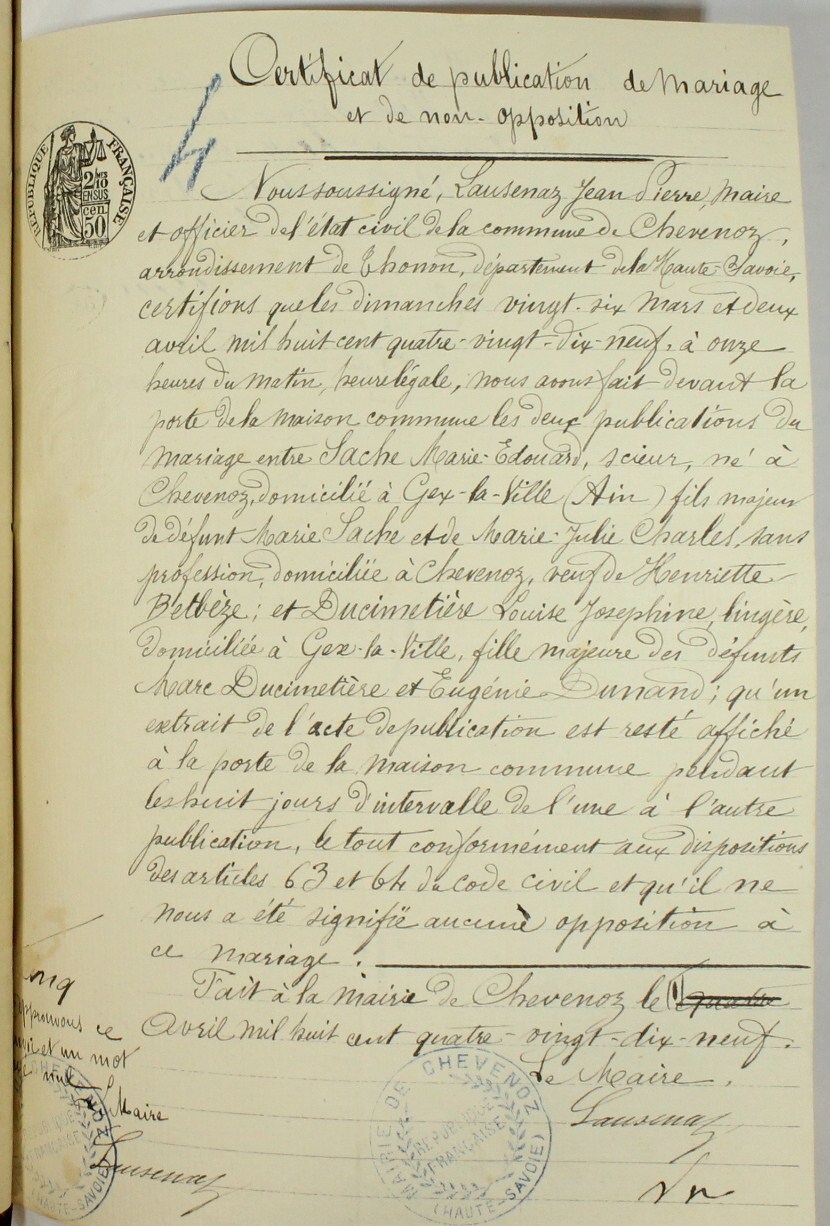 Certificat de publication de mariage
et de non-opposition
4
RÉPUBLIQUE FRANÇAISE
2/10
EN SUS
cen.
50
Nous soussigné, Lausenaz Jean Pierre, Maire
et officier de l'état civil de la commune de Chevenoz,
arrondissement de Thonon, département de la Haute Savoie,
certifions que les dimanches vingt-six Mars et deux
avril mil huit cent quatre-vingt-dix-neuf, à onze
heures du matin, heure légale, nous avons fait devant la
porte de la maison commune les deux publications du
mariage entre Sache Marie-Edouard, scieur, né à
Chevenoz, domicilié à Gex-la-Ville (Ain) fils majeur
de défunt Marie Sache et de Marie-Julie Charles, sans
profession, domiciliée à Chevenoz, veuf de Henriette
Betbèze; et Ducimetière Louise Josephine, lingère,
domiciliée à Gex-la-Ville, fille majeure des défunts
Marc Ducimetière et Eugénie Dunand; qu'un
extrait de l'acte de publication est resté affiché
à la porte de la maison commune pendant
les huit jours d'intervalle de l'une à l'autre
publication, le tout conformément aux dispositions
des articles 63 et 64 du code civil et qu'il ne
nous a été signifié aucune opposition à
ce mariage.
Fait à la mairie de Chevenoz le quatre
Avril mil huit cent quatre-vingt-dix-neuf.
Le Maire,
Lausenaz
MAIRIE DE CHEVENOZ
RÉPUBLIQUE FRANÇAISE
(HAUTE-SAVOIE)
cinq
approuvons ce
renvoi et un mot
nul
Le Maire
Lausenaz
CHEVENOZ
RÉPUBLIQUE FRANÇAISE
(HAUTE-SAVOIE)